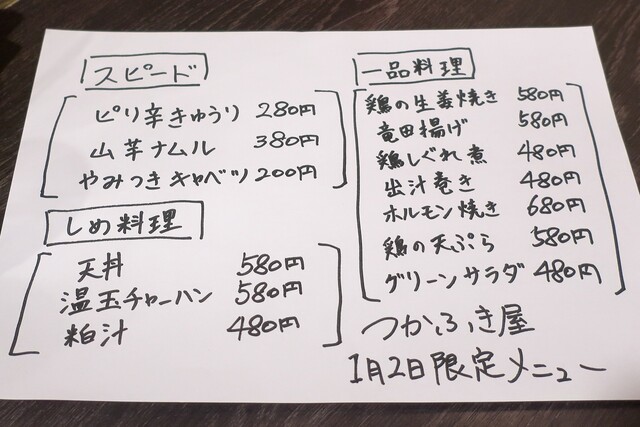 スピード
ピリ辛きゅうり 280円
山芋ナムル 380円
やみつきキャベツ 200円
しめ料理
天丼 580円
温玉チャーハン 580円
粕汁 480円
一品料理
鶏の生姜焼き 580円
竜田揚げ 580円
鶏しぐれ煮 480円
出汁巻き 480円
ホルモン焼き 680円
鶏の天ぷら 580円
グリーンサラダ 480円
つかふき屋
1月2日限定メニュー